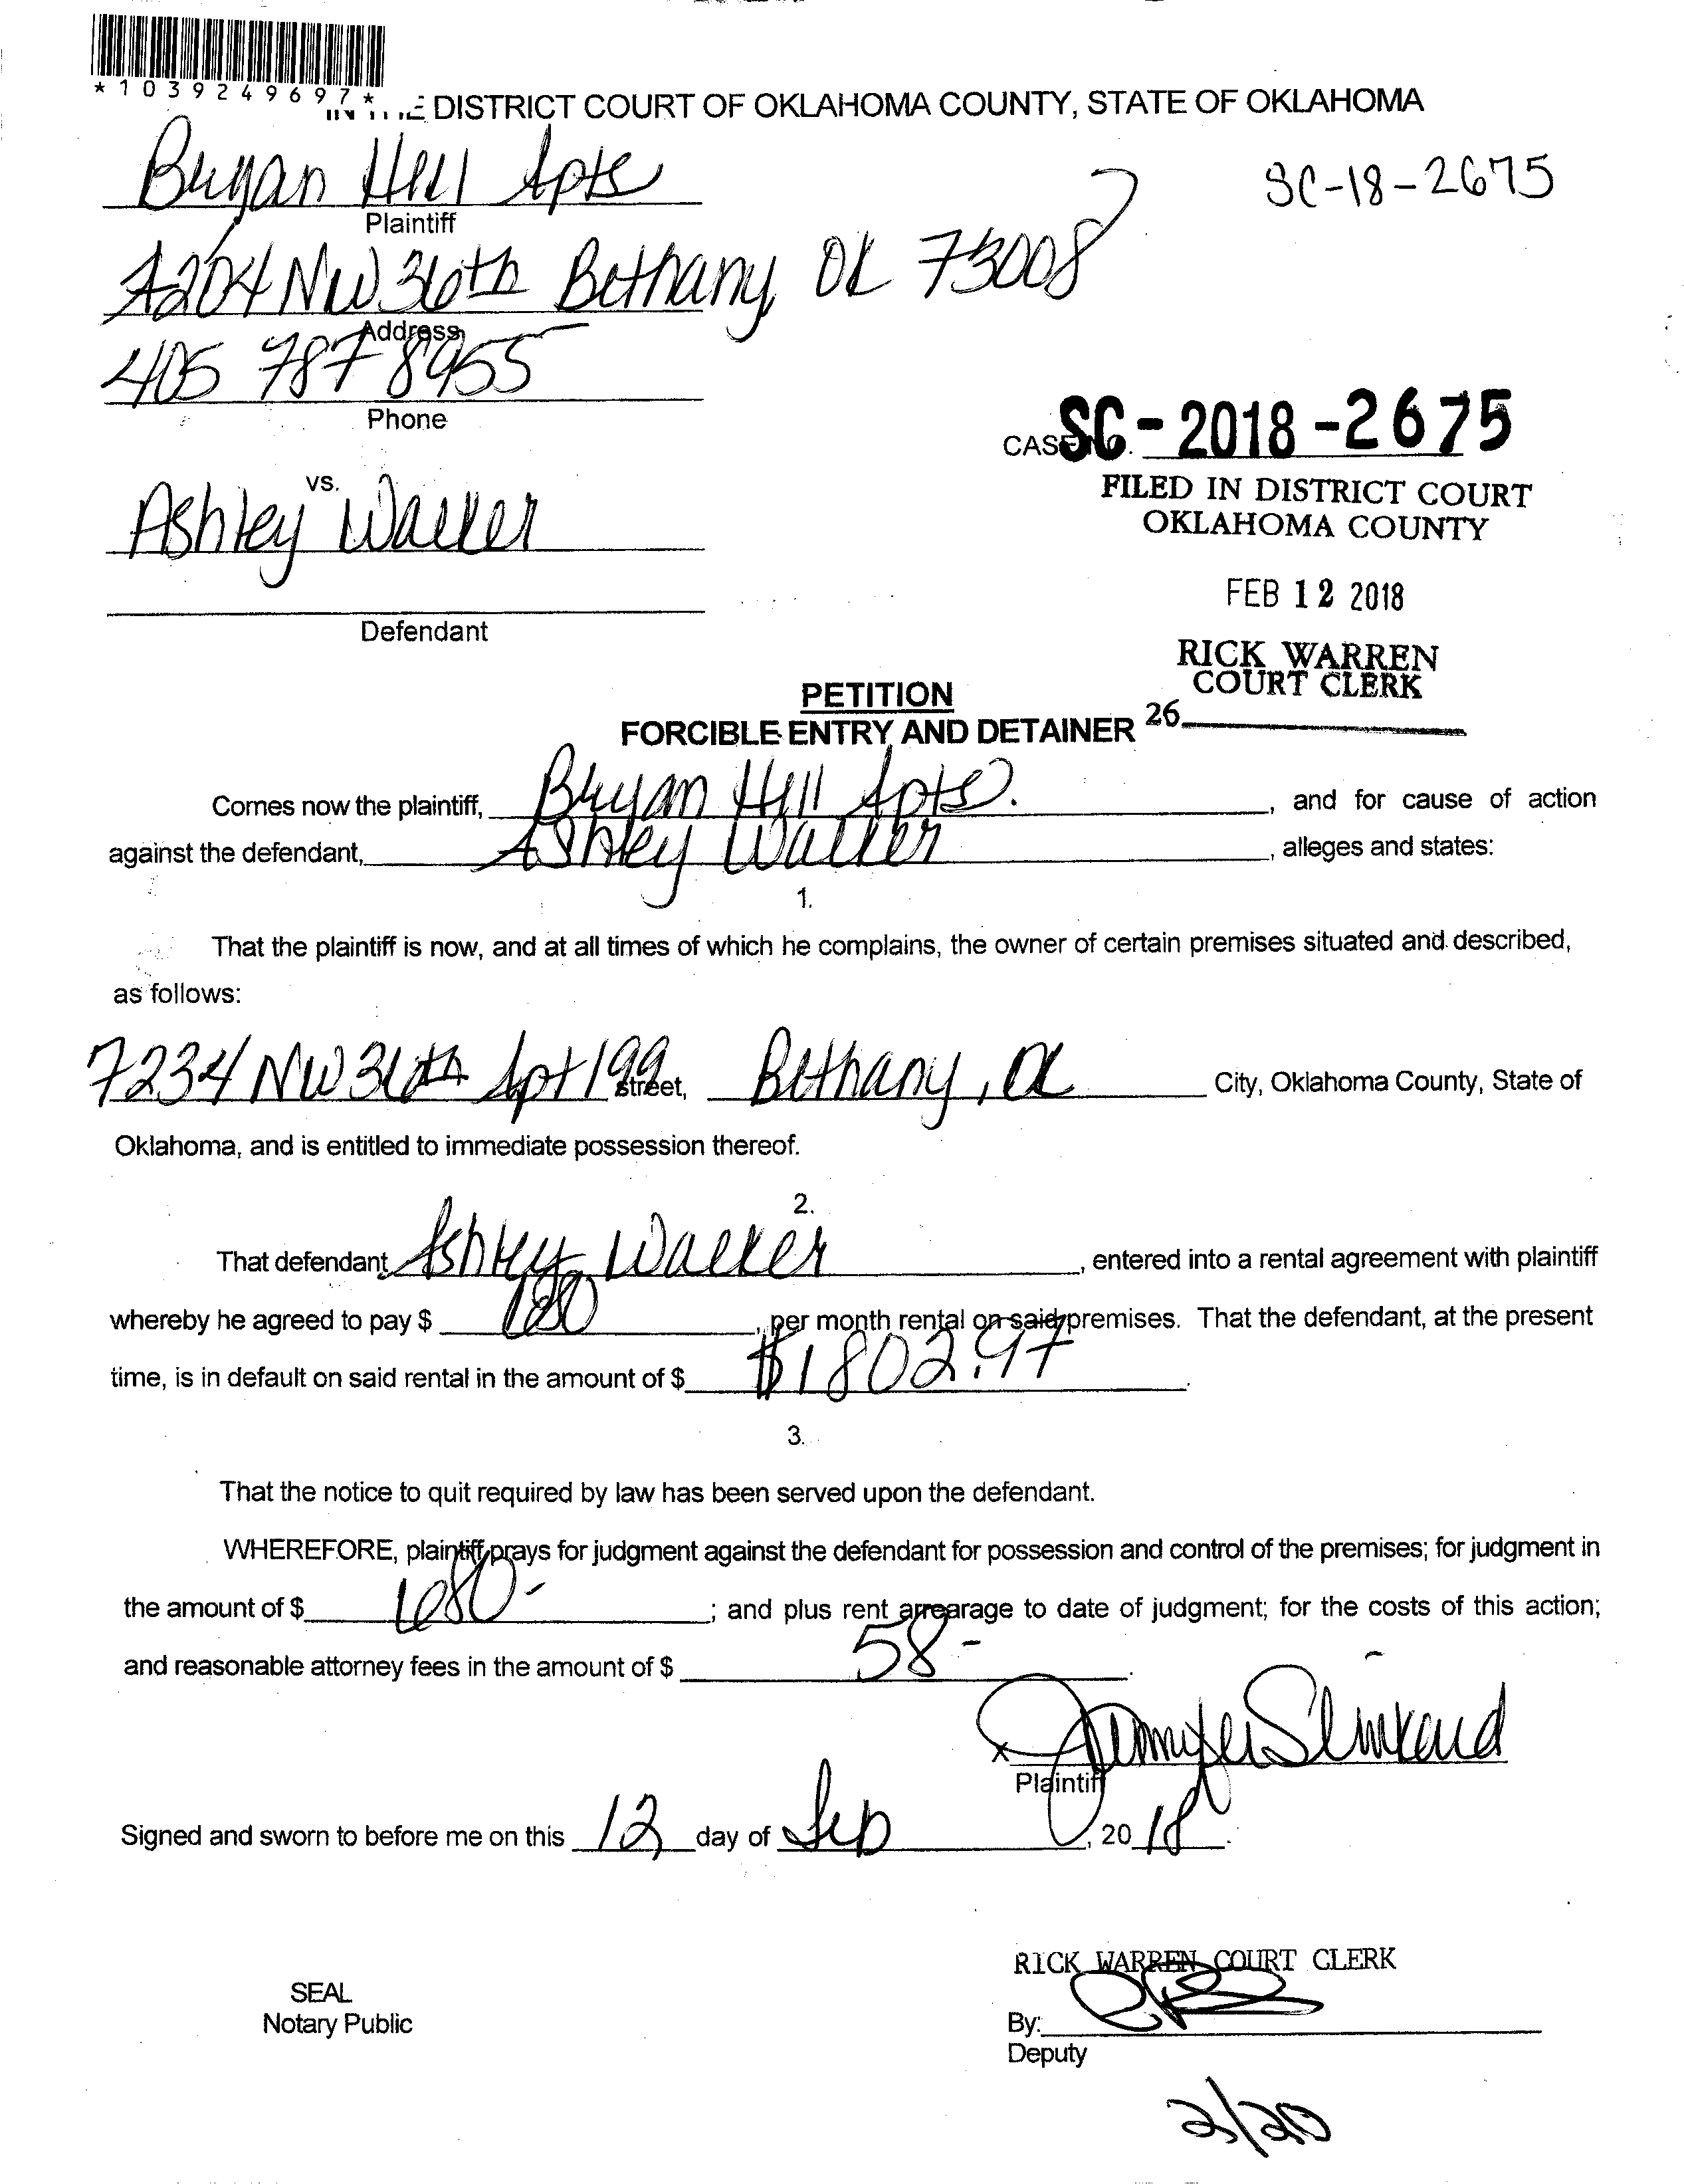 *1039249697*
DISTRICT COURT OF OKLAHOMA COUNTY, STATE OF OKLAHOMA
Bryan Hill Apts
SC-18-2675
Plaintiff
7204 NW 36th Bethany, OK 73008
Address
405 787 8955
Phone
CASE NO. SC-2018-2675
FILED IN DISTRICT COURT
OKLAHOMA COUNTY
vs.
Ashley Walker
FEB 12 2018
Defendant
RICK WARREN
COURT CLERK
PETITION
26
FORCIBLE ENTRY AND DETAINER
Comes now the plaintiff, Bryan Hill Apts. , and for cause of action
against the defendant, Ashley Walker , alleges and states:
1.
That the plaintiff is now, and at all times of which he complains, the owner of certain premises situated and described,
as follows:
7234 NW 36th Apt 199 street, Bethany, OK City, Oklahoma County, State of
Oklahoma, and is entitled to immediate possession thereof.
2.
That defendant Ashley Walker , entered into a rental agreement with plaintiff
whereby he agreed to pay $ 680 , per month rental on said premises. That the defendant, at the present
time, is in default on said rental in the amount of $ $1802.97 .
3.
That the notice to quit required by law has been served upon the defendant.
WHEREFORE, plaintiff prays for judgment against the defendant for possession and control of the premises; for judgment in
the amount of $ 680- ; and plus rent arrearage to date of judgment; for the costs of this action;
and reasonable attorney fees in the amount of $ 58- .
x Jennifer
Plaintiff
Signed and sworn to before me on this 12 day of Feb , 20 18 .
RICK WARREN COURT CLERK
SEAL
Notary Public
By:
Deputy
2/20